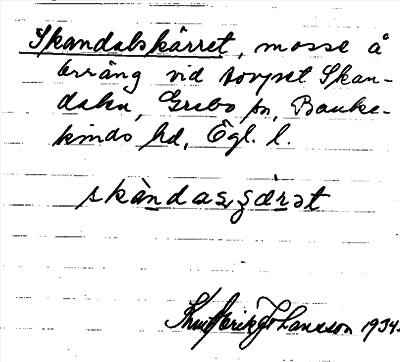 Skandalskärret, mosse å
terräng vid torpet Skan-
dalen, Grebo sn, Banke-
kinds hd, Ögl. l.
skàndasʂæ̀rət
Knut Erik Johansson 1934.